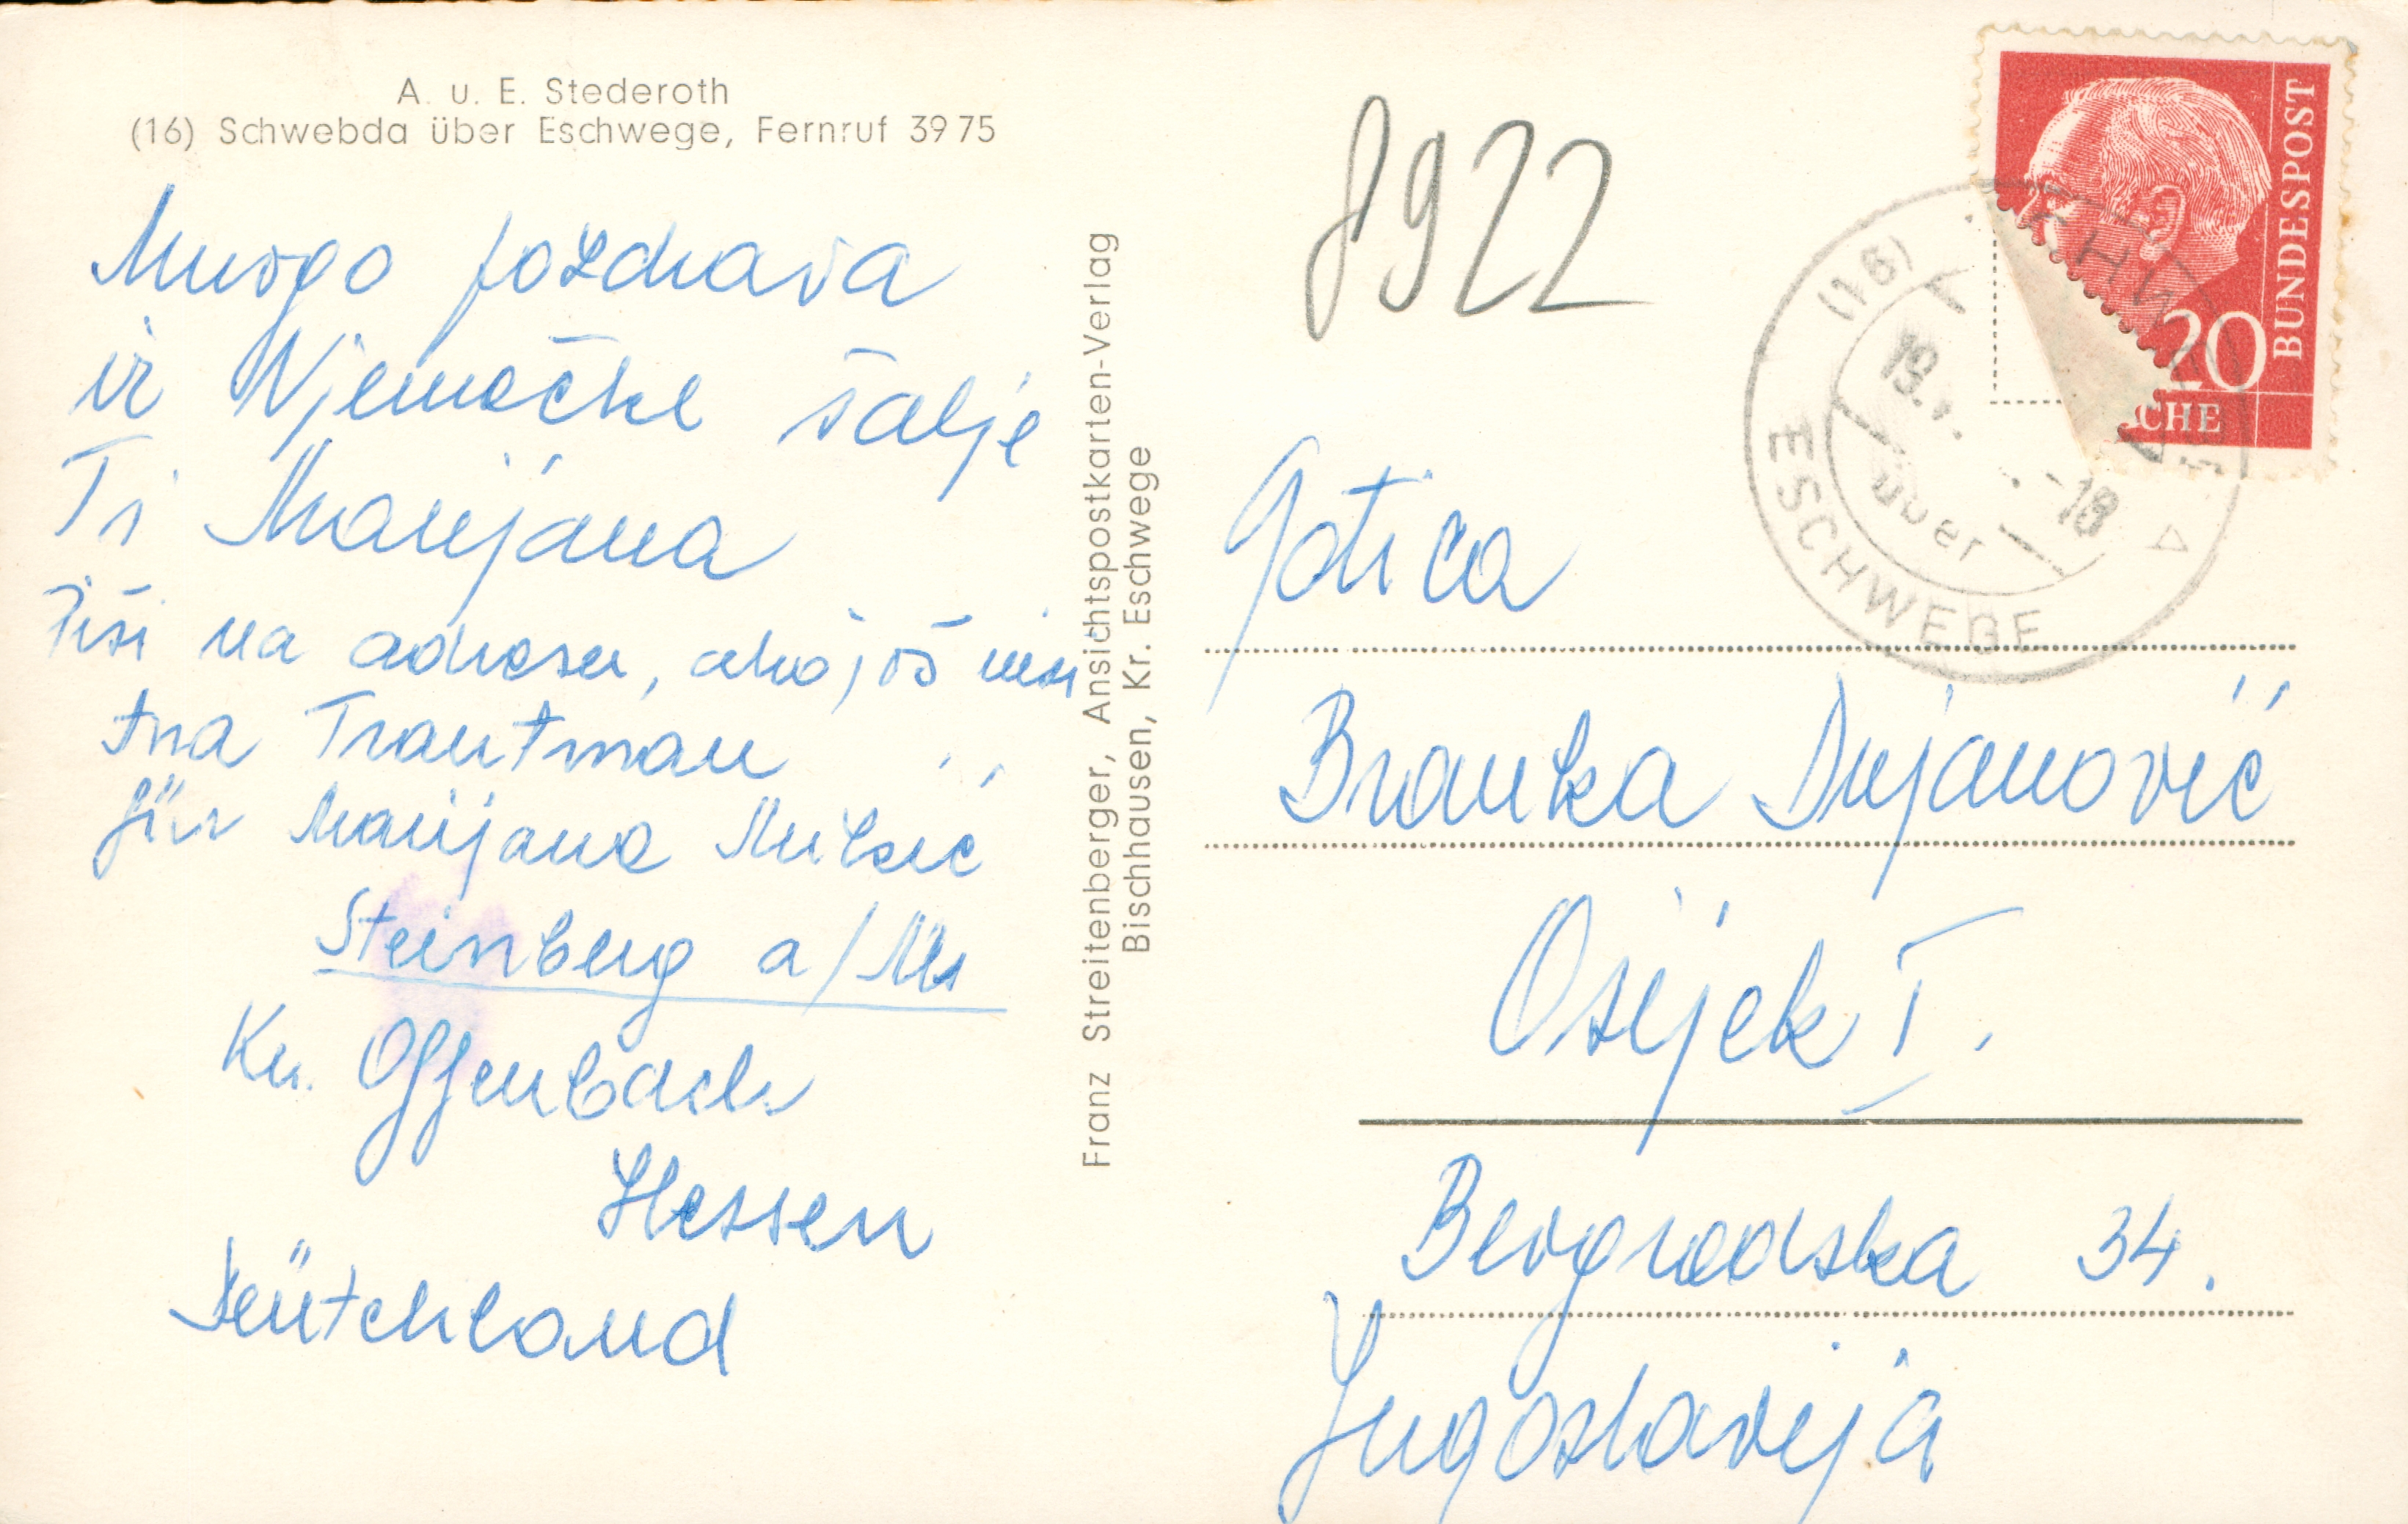 A. u. E. Stederoth
(16) Schwebda über Eschwege, Fernruf 39 75
Mnogo pozdrava
iz Njemačke šalje
Ti Marijana
Piši na adresu, ako još nisi
tna Trautman
für Marijana Mikšić
Steinberg a/M
Kr. Offenbach
Hessen
Deütchland
Franz Streitenberger, Ansichtspostkarten-Verlag
Bischhausen, Kr. Eschwege
8922
BUNDESPOST
20
CHE
(16)
19.
-18
über
ESCHWEGE
Gđica
Branka Dujanović
Osijek I.
Beogradska 34.
Jugoslavija